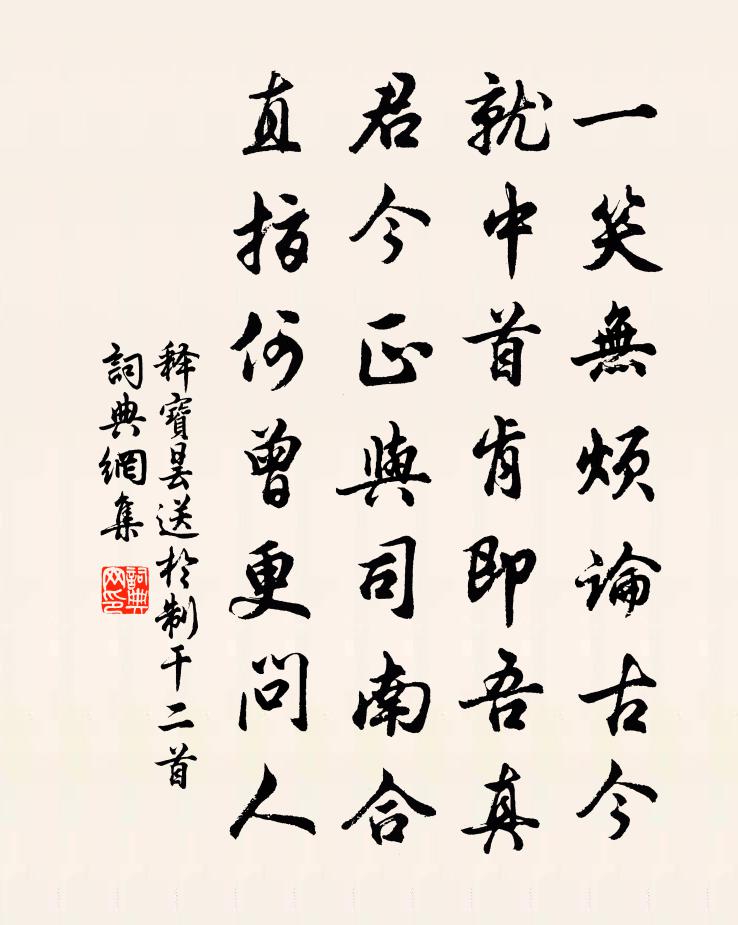 一笑無煩論古今
就中首肯即吾真
君今正與司南合
直指何曾更問人
释寶曇送於制干二首
詞典網集
詞典
网印